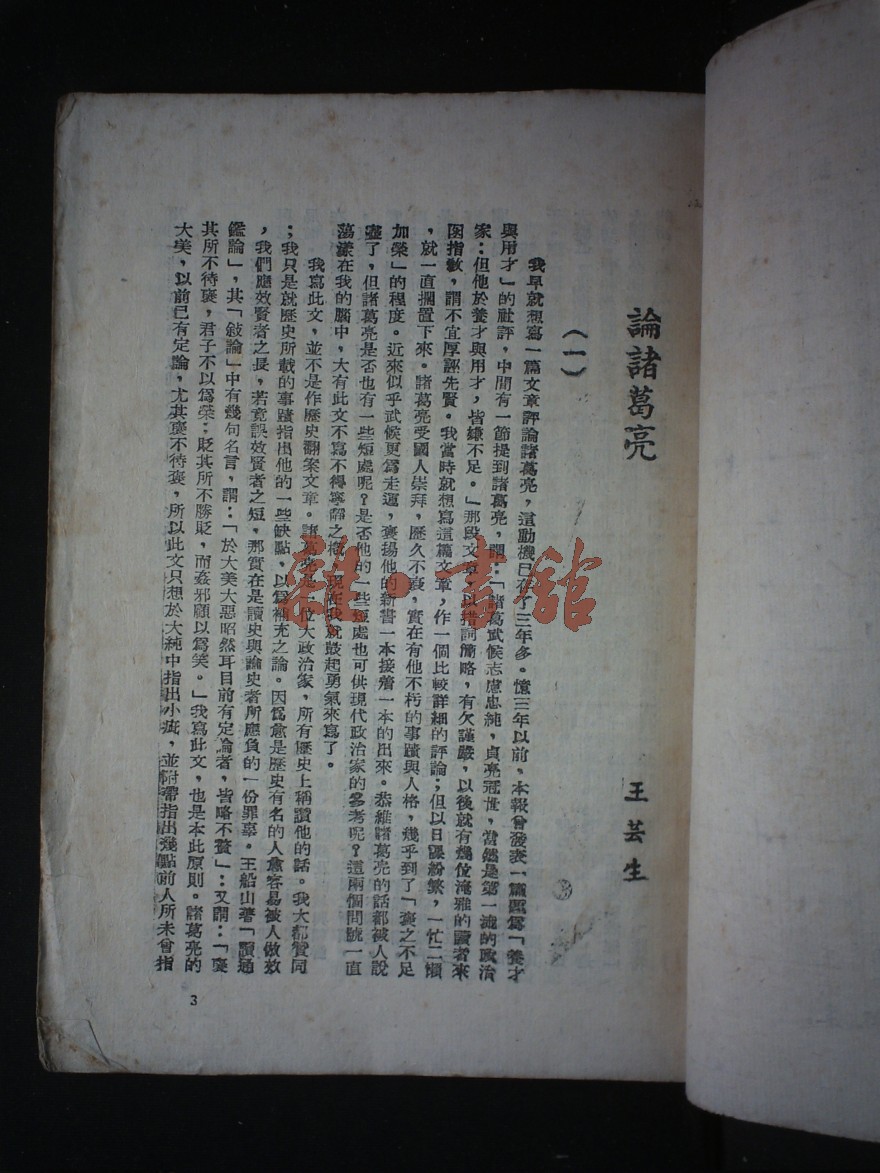 論諸葛亮
王芸生
(一)
我早就想寫一篇文章評論諸葛亮，這動機已存了三年多。憶三年以前，本報曾發表一篇題爲「養才
與用才」的社評，中間有一節提到諸葛亮，謂：「諸葛武候志慮忠純，貞亮冠世，當然是第一流的政治
家；但他於養才與用才，皆嫌不足。」那段文章，以措詞簡略，有欠謹嚴，以後就有幾位淹雅的讀者來
函指敎，謂不宜厚誣先賢。我當時就想寫這篇文章，作一個比較詳細的評論；但以日課紛繁，一忙二懶
，就一直擱置下來。諸葛亮受國人崇拜，歷久不衰，實在有他不朽的事蹟與人格，幾乎到了「褒之不足
加榮」的程度。近來似乎武候更爲走運，褒揚他的新書一本接着一本的出來。恭維諸葛亮的話都被人說
盡了，但諸葛亮是否也有一些短處呢？是否他的一些短處也可供現代政治家的參考呢？這兩個問號一直
蕩漾在我的腦中，大有此文不寫不得寧靜之槪，現在我就鼓起勇氣來寫了。
我寫此文，並不是作歷史翻案文章。諸葛亮是一位大政治家，所有歷史上稱讚他的話。我大都贊同
；我只是就歷史所載的事蹟指出他的一些缺點，以爲補充之論。因爲愈是歷史有名的人愈容易被人倣效
，我們應效賢者之長，若竟誤效賢者之短，那實在是讀史與論史者所應負的一份罪辜。王船山著「讀通
鑑論」，其「敍論」中有幾句名言，謂：「於大美大惡昭然耳目前有定論者，皆略不贅」；又謂：「褒
其所不待褒，君子不以爲榮；貶其所不勝貶，而姦邪顧以爲笑。」我寫此文，也是本此原則。諸葛亮的
大美，以前已有定論，尤其褒不待褒，所以此文只想於大純中指出小疵，並附帶指出幾點前人所未曾指
3
雜·書館